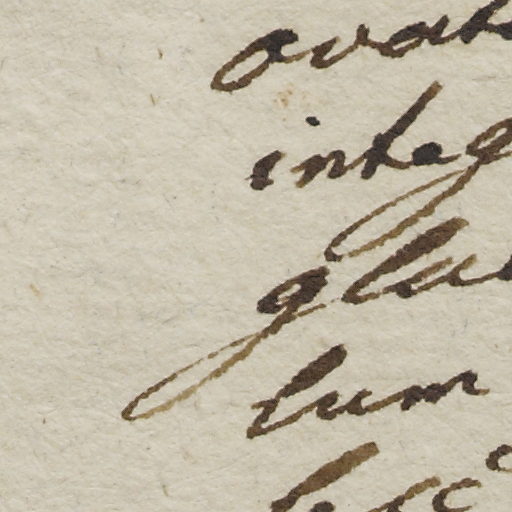 ovat
integ
gla
lum